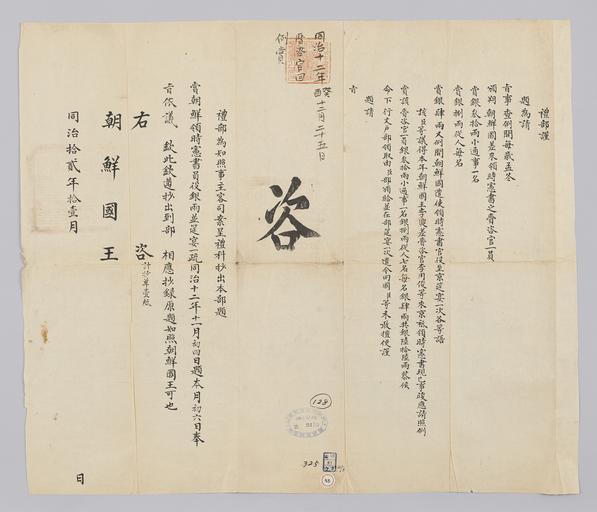 禮部謹
題為請
旨事查例開每歲孟冬
頒朔朝鮮國差來領時憲書之賫咨官一員
賞銀叁拾兩小通事一名
賞銀捌兩從人每名
賞銀肆兩又例開朝鮮國遣使領時憲書官役至京筵宴一次各等語
該臣等議得本年朝鮮國王李差賫咨官李用俊等來京祗領時憲書現已事竣應請照例
賞該賫咨官一員銀叁拾兩小通事一名銀捌兩從人七名每名銀肆兩共銀陸拾陸兩恭候
命下行文戶部領取由臣部頒給並在部筵宴一次遣令回國臣等未敢擅便謹
題請
旨
同治十二年
癸酉十二月二十五日
曆咨官回
例賞
咨
禮部為知照事主客司案呈禮科抄出本部題
賞朝鮮領時憲書員役銀兩並筵宴一疏同治十二年十一月初四日題本月初六日奉
旨依議 欽此欽遵抄出到部 相應抄錄原題知照朝鮮國王可也
右 咨 計抄單壹紙
朝鮮國王
同治拾貳年拾壹月 日
128
325